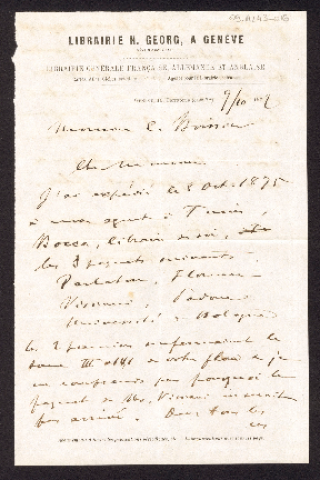 LIBRAIRIE H. GEORG, A GENÈVE
LIBRAIRIE GÉNÉRALE FRANÇAISE, ALLEMANDE ET ANGLAISE
9/10
Monsieur E. Boissier
Cher monsieur
J'ai expédié le 2 Oct. 1875
à mon agent à Turin,
Bocca, libraire du roi,
les 3 paquets suivants:
Parlatore, Florence
Visiani, Padoue
Université de Bologne
les 2 premiers renfermaient le
tome III de votre flore & je
ne comprends pas pourquoi le
paquet de Mr. Visiani
pas arrivé. Dans tous les